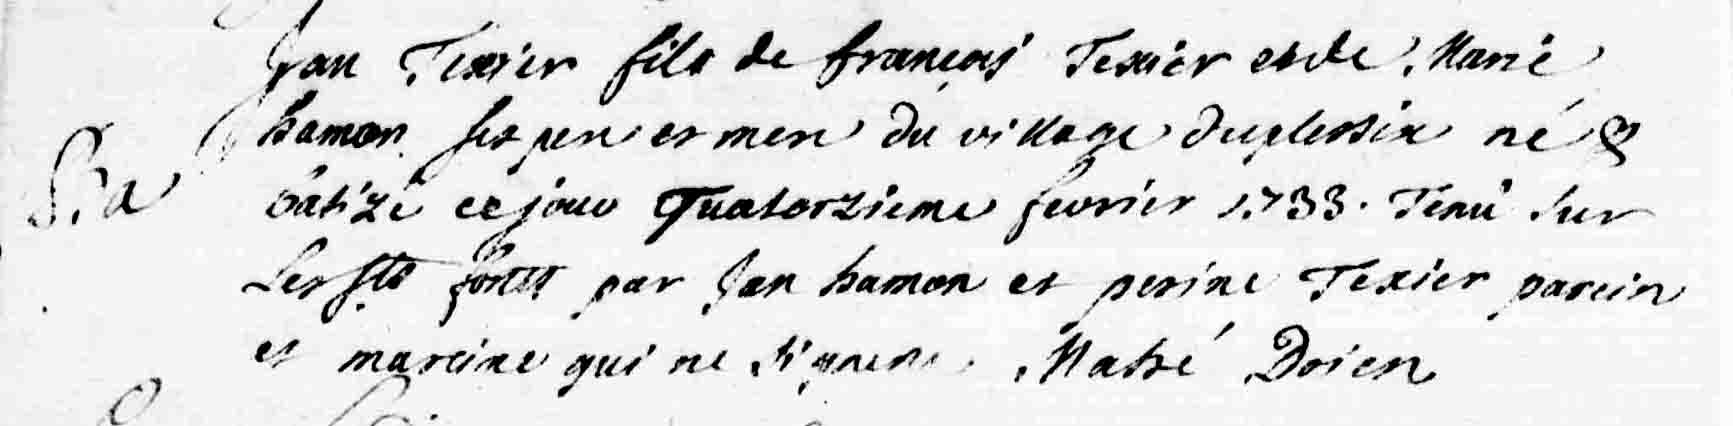 Jan Texier fils de françois Texier et de Marie
hamon ses pere et mere du village du plessix né &
batizé ce jour Quatorzieme fevrier 1733. Tenu sur
Les sts fonts par Jan hamon et perine Texier parein
et mareine qui ne signent. Mahé Doien